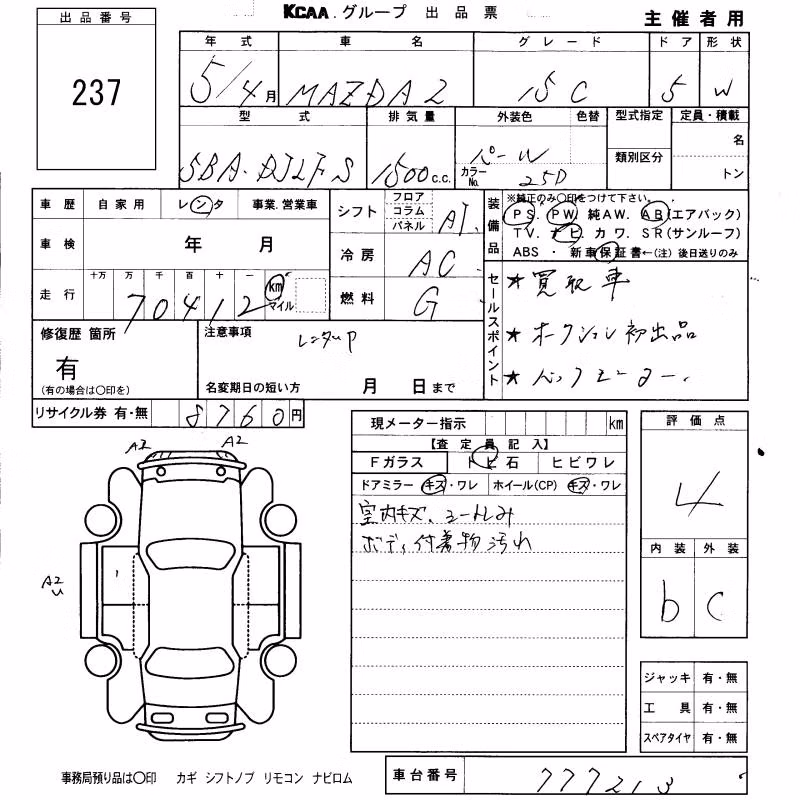 出品番号 KCAA.グループ 出品票 主催者用
237
年式 車名 グレード ドア 形状
5/4月 MAZDA2 15C 5 W
型式 排気量 外装色 色替 型式指定 定員・積載
名
類別区分
トン
5BA-DJLFS 1500c.c. パール カラーNo. 25D
車歴 自家用 レンタ 事業.営業車
シフト フロア コラム パネル AT
装備品 ※純正のみ〇印をつけて下さい。
PS. PW. 純AW. AB(エアバック)
TV. ナビ. カワ. SR(サンルーフ)
ABS ・ 新車保証書←(注)後日送りのみ
車検 年 月
冷房 AC
走行 十万 万 千 百 十 一
70412 km マイル
燃料 G
セールスポイント
★ 買取車
★ オークション初出品
★ バックモニター.
修復歴 箇所
有
(有の場合は〇印を)
注意事項 レンタUP
名変期日の短い方 月 日まで
リサイクル券 有・無 8760円
現メーター指示 km
【査定員記入】
Fガラス トビ石 ヒビワレ
ドアミラー キズ・ワレ ホイール(CP) キズ・ワレ
室内キズ、シートしみ
ボディ付着物汚れ
評価点
4
内装 外装
b C
A2 A2
A2
U
ジャッキ 有・無
工具 有・無
スペアタイヤ 有・無
事務局預り品は〇印 カギ シフトノブ リモコン ナビロム
車台番号 777213